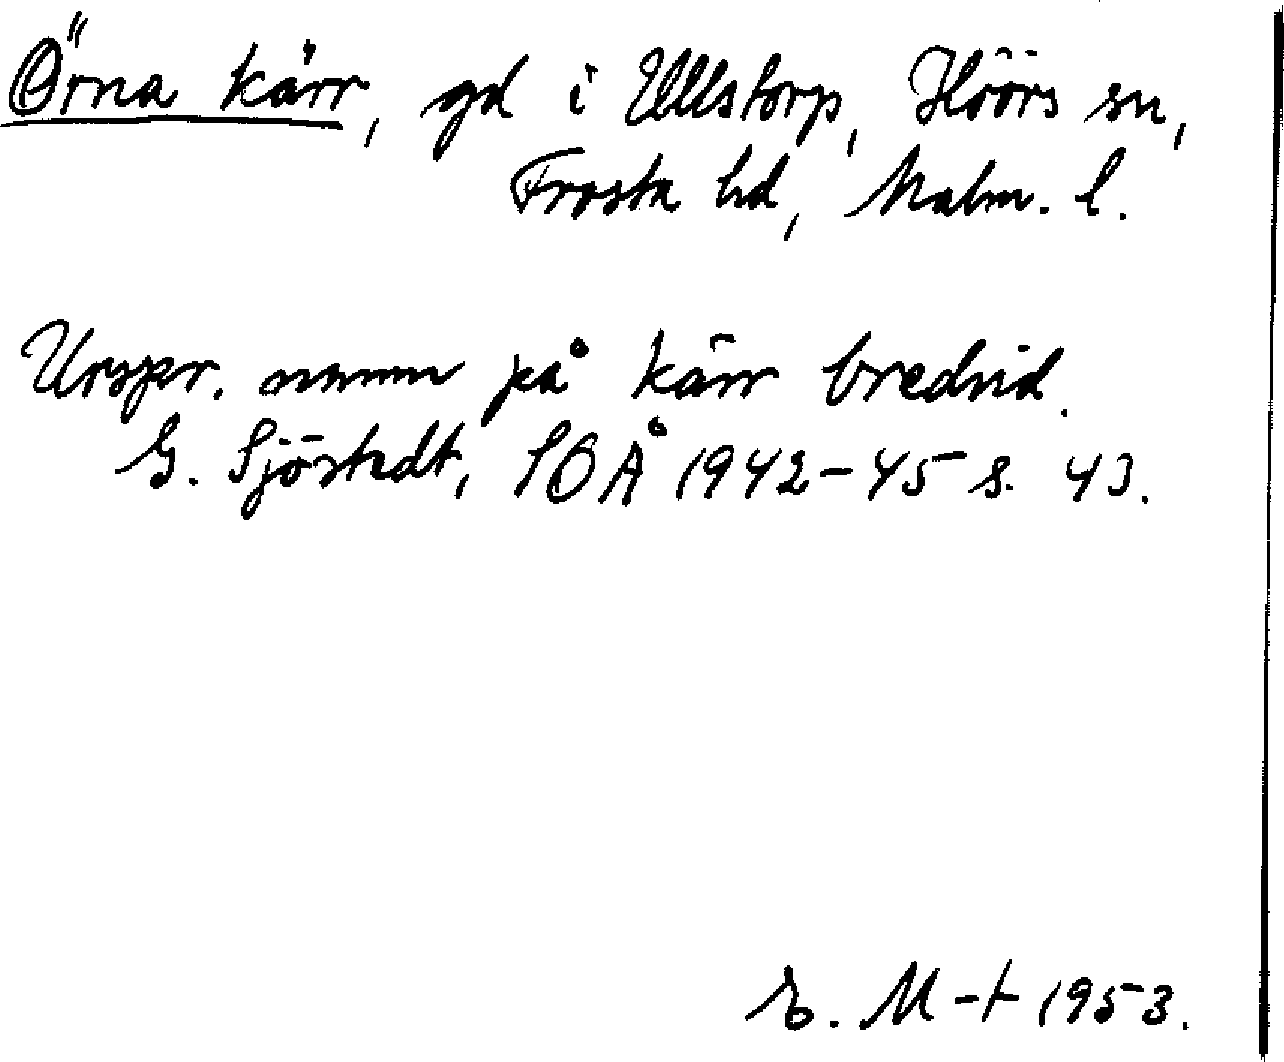 Örna kärr, gd i Ullstorp, Höörs sn,
Frosta hd, Malm. l.
Urspr. namn på kärr bredvid.
G. Sjöstedt, SOÅ 1942-45 s. 43.
E. M-t 1953.